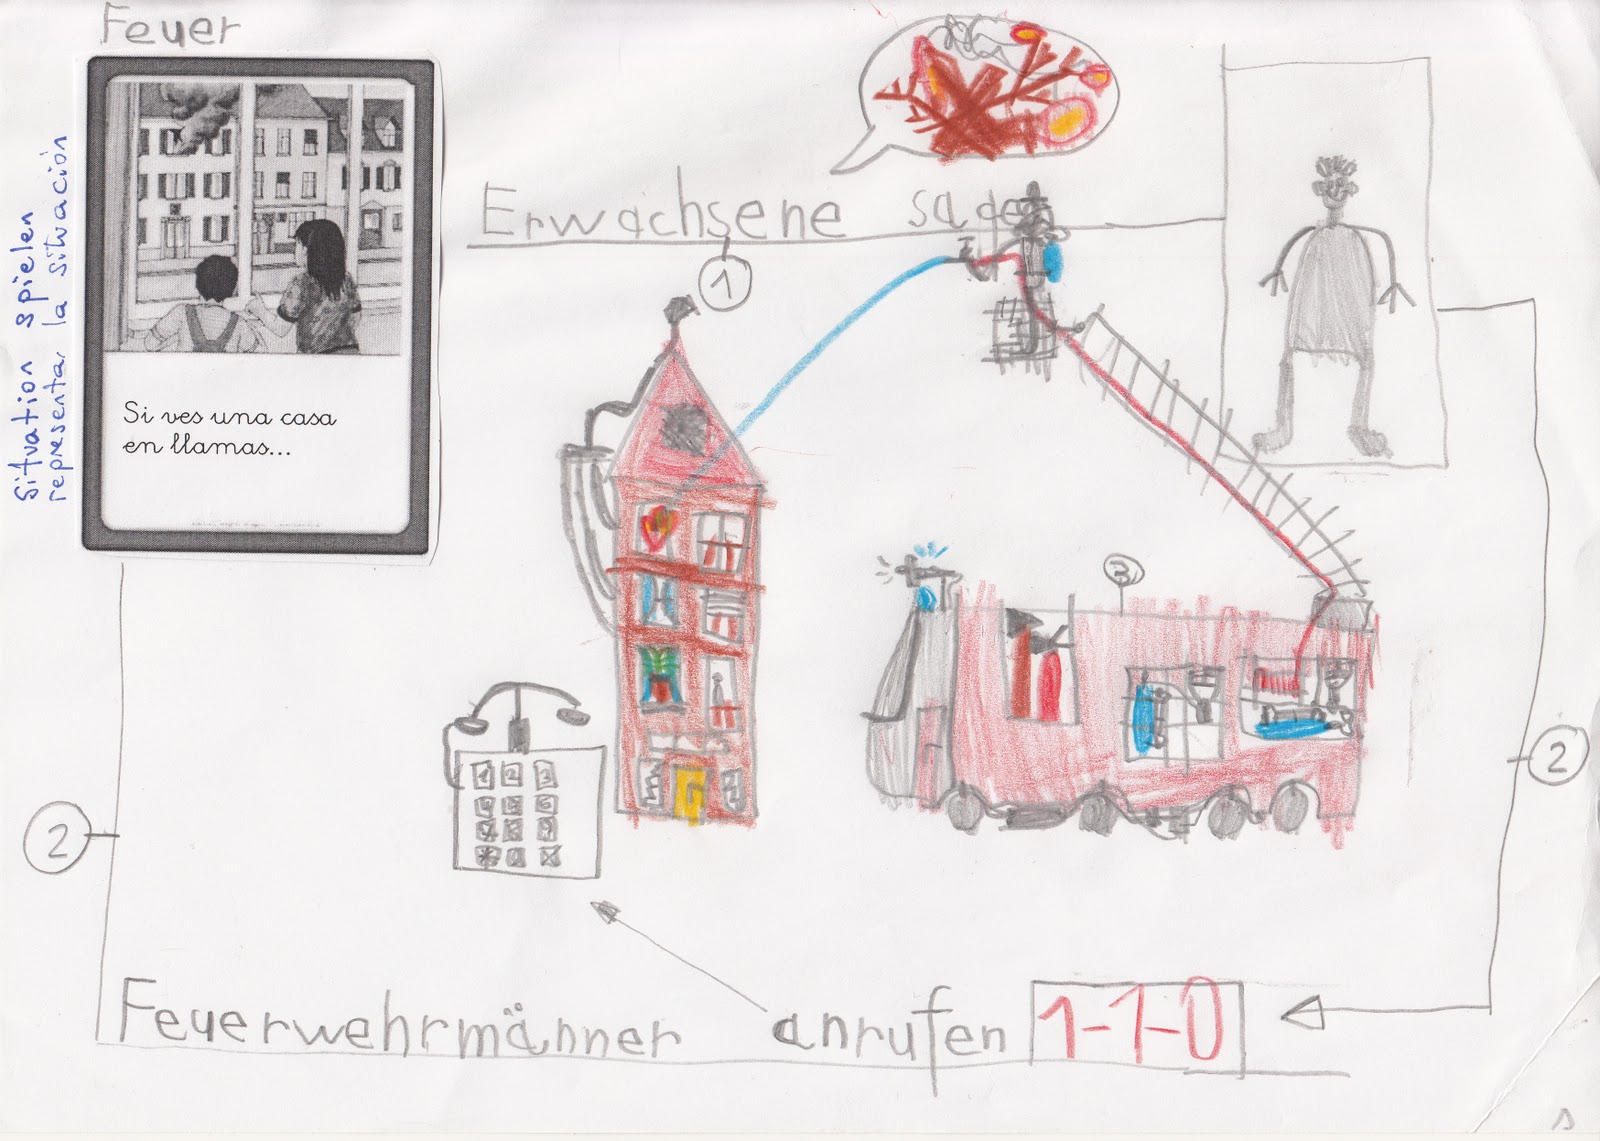 Feuer
Situation spielen
representar la situación
Si ves una casa
en llamas...
Erwachsene sagen
1
2
3
2
1 2 3
Feuerwehrmänner anrufen 1-1-0